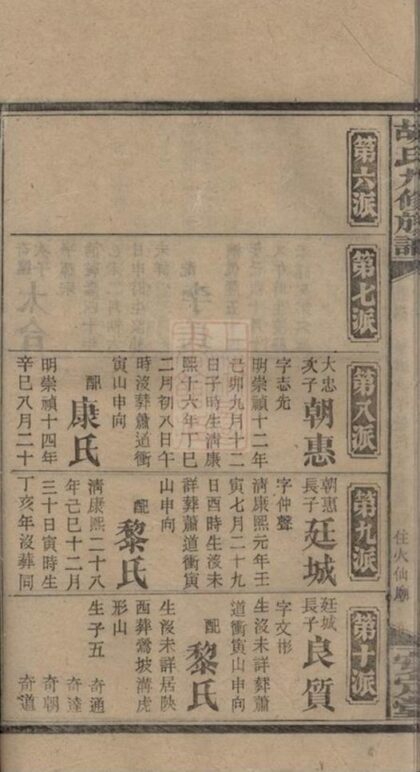 胡氏九修族譜
住火仙廟
安定堂
第六派
第七派
第八派
大忠
次子
朝惠
字志先
明崇禎十二年
己卯九月十二
日子時生清康
熙十六年丁巳
二月初八日午
時沒葬蕭道衝
寅山申向
配
康氏
明崇禎十四年
辛巳八月二十
第九派
朝惠
長子
廷城
字仲聲
清康熙元年壬
寅七月二十九
日酉時生沒未
詳葬蕭道衝寅
山申向
配
黎氏
清康熙二十八
年己巳十二月
三十日寅時生
丁亥年沒葬同
第十派
廷城
長子
良質
字文彬
生沒未詳葬蕭
道衝寅山申向
配
黎氏
生沒未詳居陝
西葬鶯坡溝虎
形山
生子五
奇通
奇達
奇朝
奇道